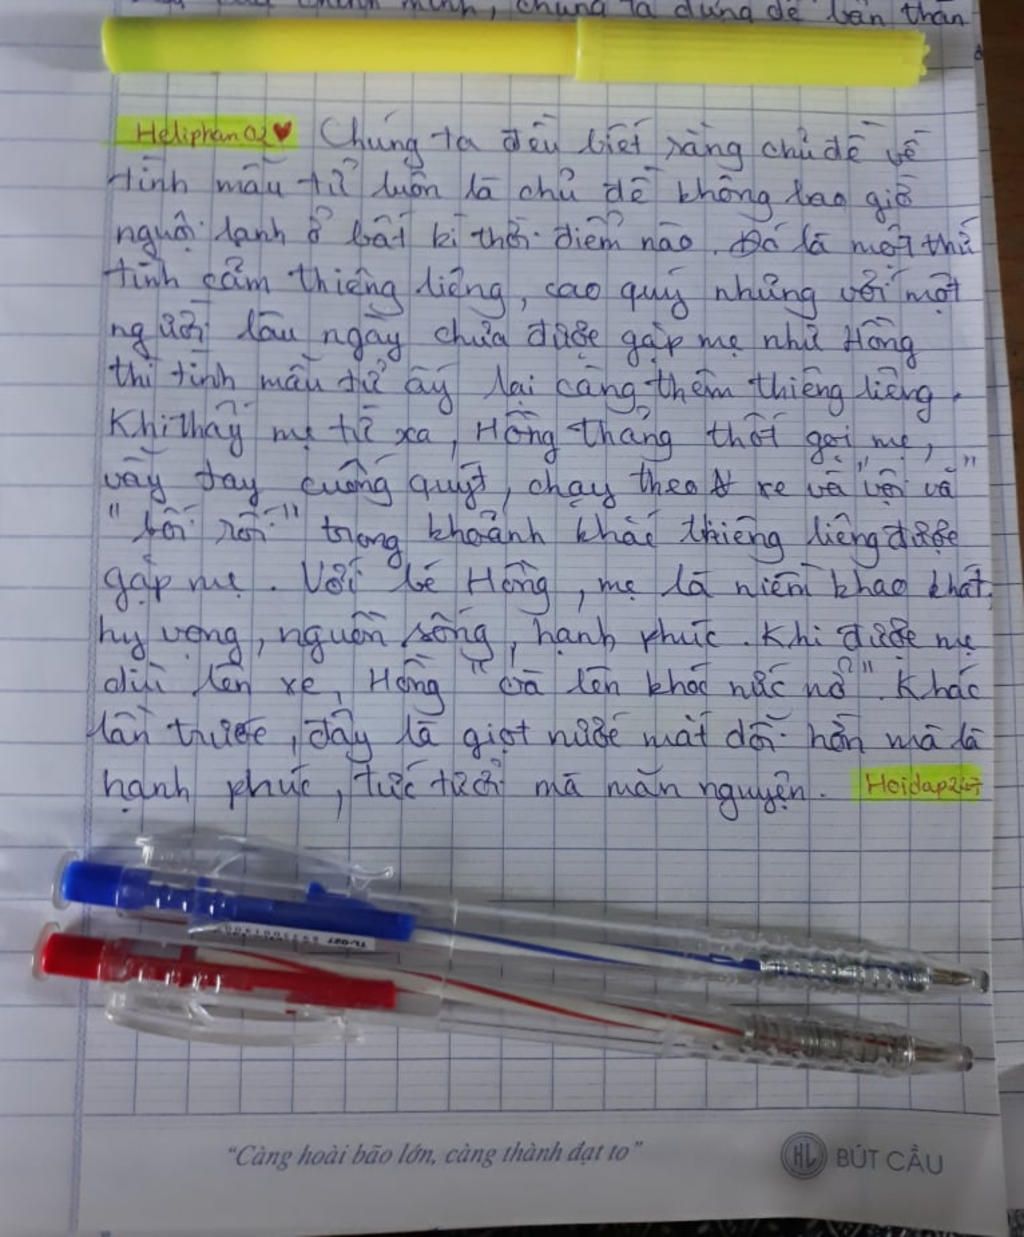 chính mình, chúng ta đừng để bản thân
Heliphan02♥ Chúng ta đều biết rằng chủ đề về
tình mẫu tử luôn là chủ đề không bao giờ
nguội lạnh ở bất kì thời điểm nào. Đó là một thứ
tình cảm thiêng liêng, cao quý nhưng với một
người lâu ngày chưa được gặp mẹ như Hồng
thì tình mẫu tử ấy lại càng thêm thiêng liêng.
Khi thấy mẹ từ xa, Hồng thảng thốt gọi mẹ,
vẫy tay cuống quýt, chạy theo xe và "vội vã"
"bối rối" trong khoảnh khắc thiêng liêng được
gặp mẹ. Với bé Hồng, mẹ là niềm khao khát,
hy vọng, nguồn sống, hạnh phúc. Khi được mẹ
dìu lên xe, Hồng "oà lên khóc nức nở". Khác
lần trước, đây là giọt nước mắt dỗi hờn mà là
hạnh phúc, tức tưởi mà mãn nguyện. Hoidap247
TL-027
"Càng hoài bão lớn, càng thành đạt to"
HL BÚT CẦU